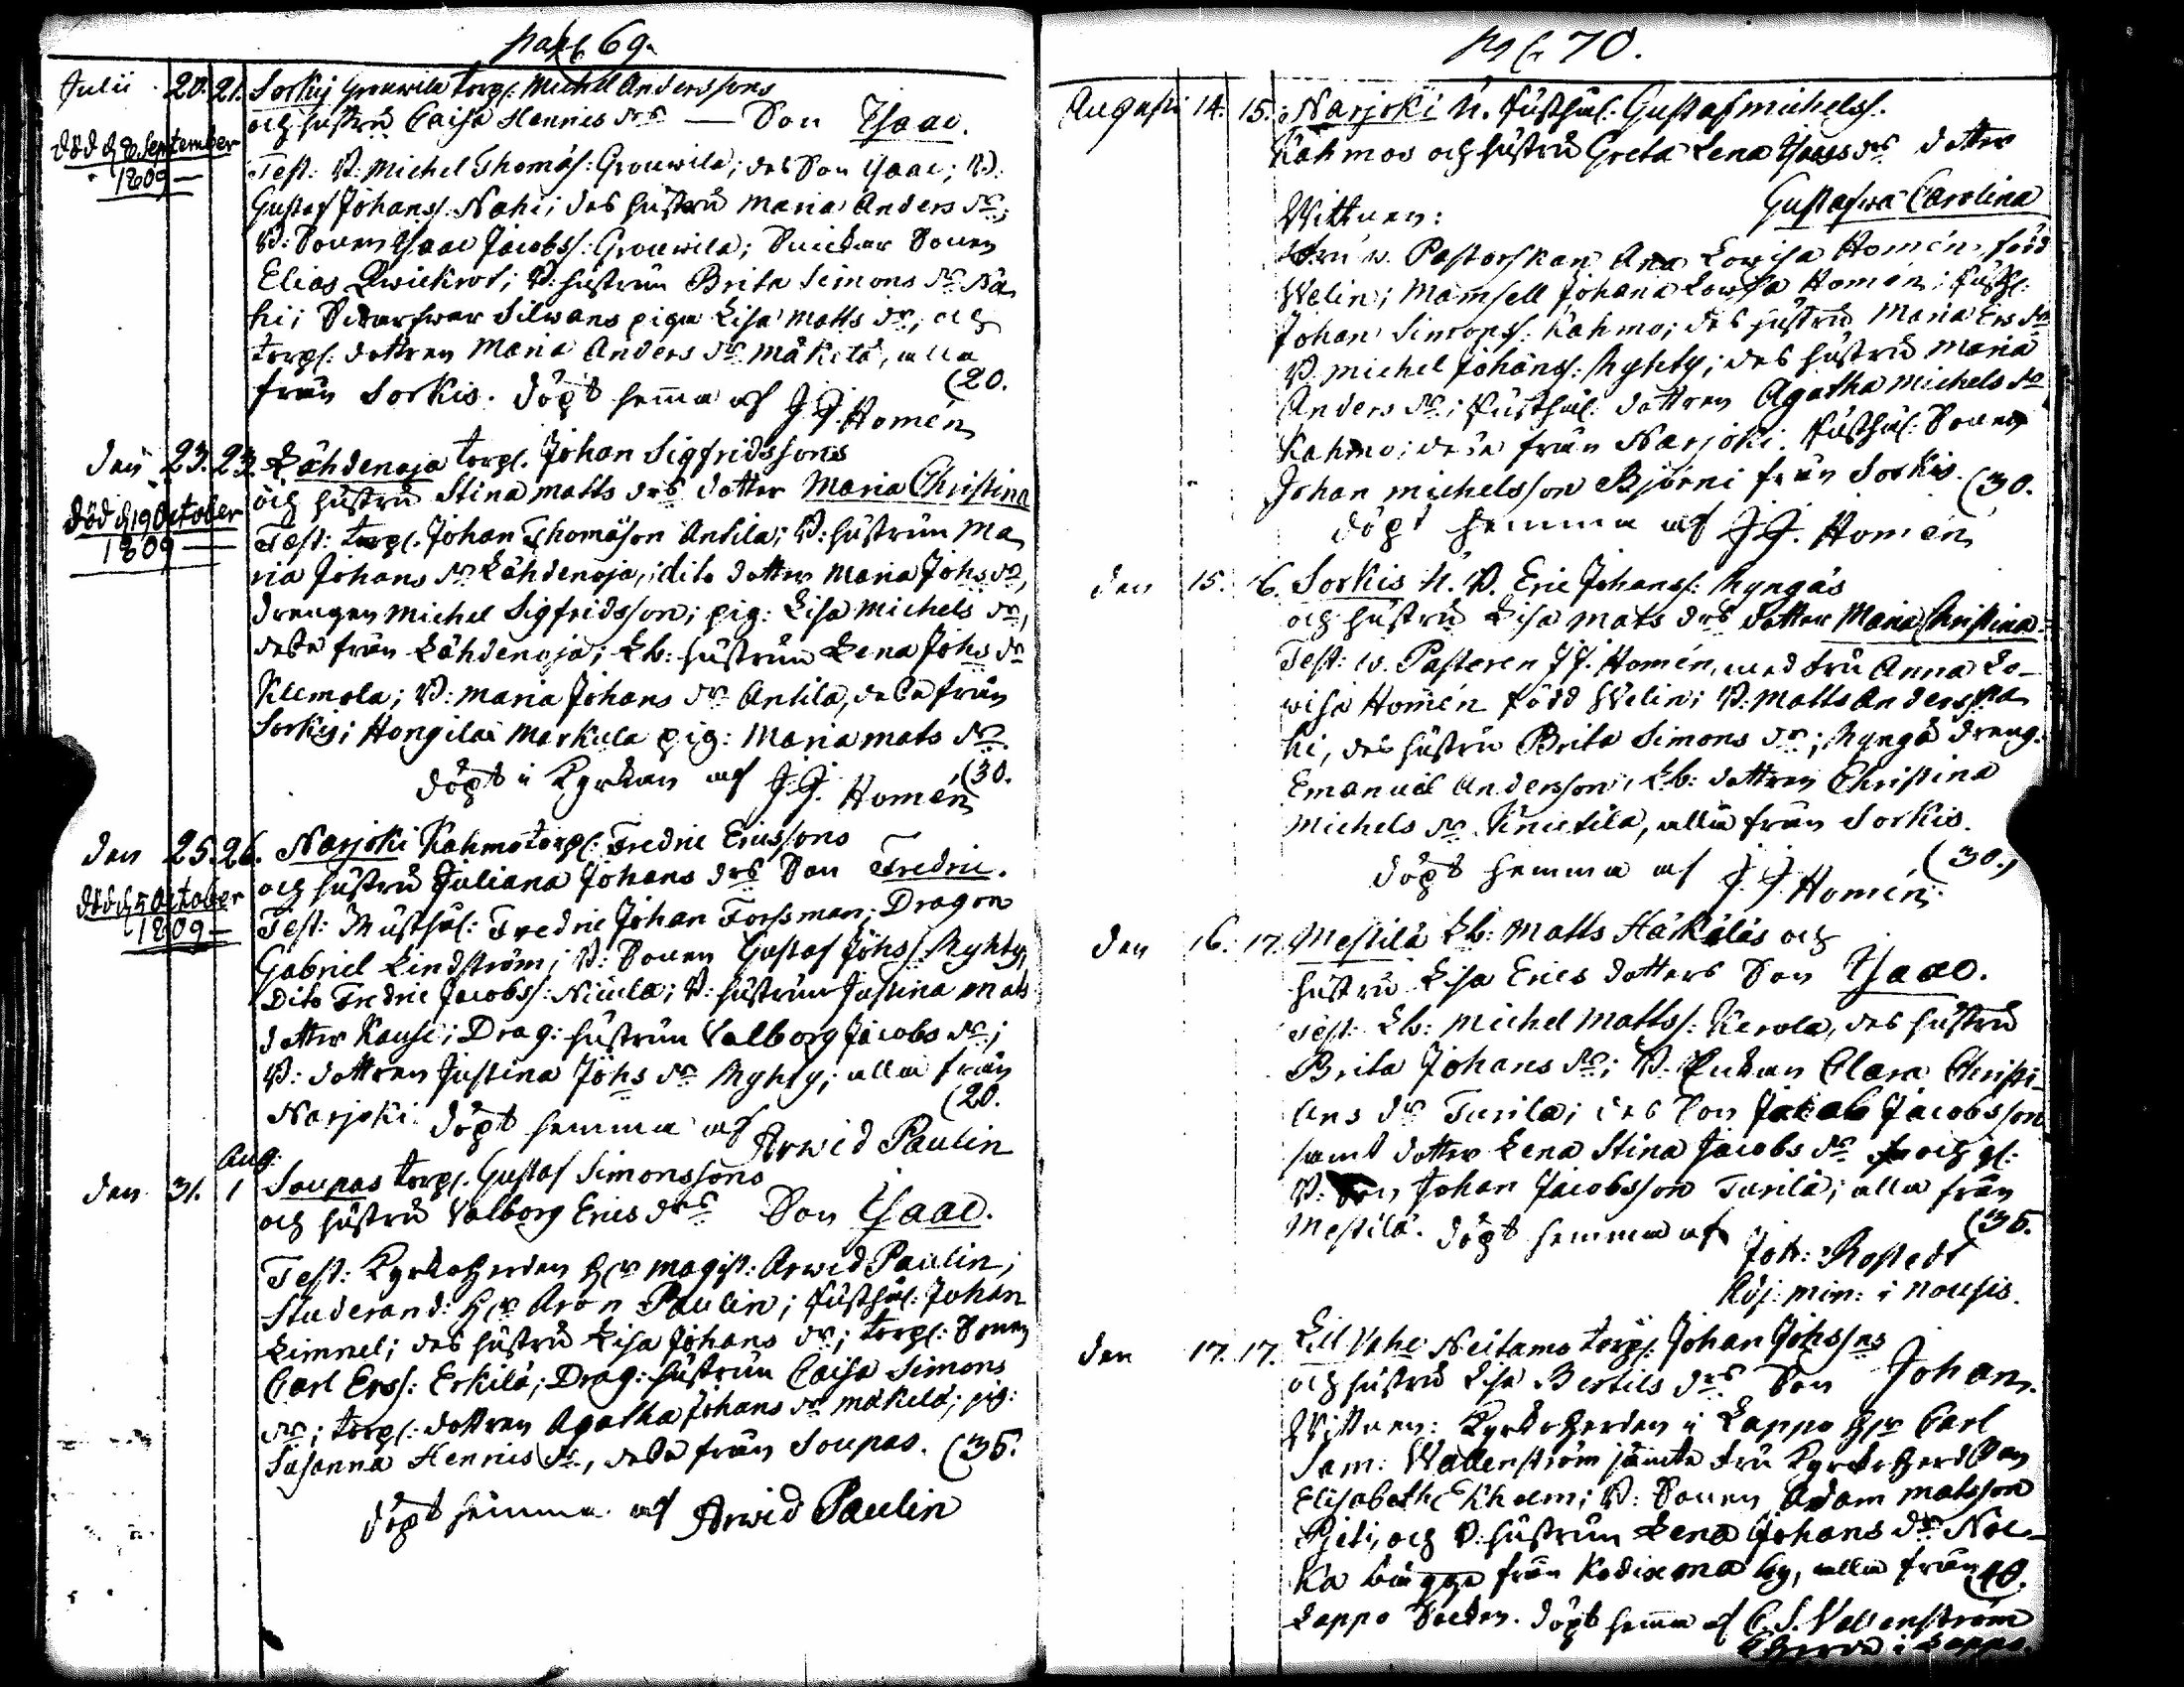 pag. 69.
Julii 20. 21. Sorkis Grouwila torp. Michel Anderssons
och hustru Caisa Hennics drs — Son Isaac.
död d 8 September
1809 —
Test: B: Michel Thomass: Grouwila; des Son Isaac; B:
Gustaf Johanss: Nahi; des hustru Maria Anders dr;
B: Sonen Isaac Jacobss: Grouwila; Snickar Sonen
Elias Qwickrot; B: hustrun Brita Simons dr Na
hi; Silwans pigа Lisa Matts dr; och
torp: dottren Maria Anders dr Mäkilä, alla
från Sorkis. döpt hemma af J.J. Homén (20.
den 23. 23. Lähdenoja torp. Johan Sigfridssons
och hustru Stina Matts drs dotter Maria Christina
död d 19 October
1809 —
Test: torp. Johan Thomason Antila; B: hustrun Ma
ria Johans dr Lähdenoja, dito dotter Maria Johs dr,
drengen Michel Sigfridsson; pig: Lisa Michels dr,
dese från Lähdenoja; Lb: hustrun Lena Johs dr
Klemola; B: Maria Johans dr Antila, dese från
Sorkis; Hongila Markula pig: Maria Mats dr.
döpt i Kyrkan af J.J. Homén (30.
den 25. 26. Narjoki Kahmo torp: Fredric Ericssons
och hustru Juliana Johans drs Son Fredric.
död d 5 October
1809 —
Test: Fredric Johan Forssman; Dragon
Gabriel Lindström; B: Sonen Gustaf Johss: Myhty,
Dito Fredric Jacobss: Niuula; B: hustrun Justina Mats
dotter Kausi; Drag: hustrun Valborg Jacobs dr;
B: dottren Justina Johs dr Myhty; alla från
Narjoki. döpt hemma af Arwid Paulin (20.
Aug:
den 31. 1 Soupas torp. Gustaf Simonssons
och hustru Valborg Erics drs Son Isaac.
Test: Kyrkoherden Hr Magist: Arwid Paulin;
Studerand: Hr Aron Paulin; Johan
Limnel; des hustru Lisa Johans dr; torp: Sonen
Carl Erss: Erkilä; Drag: hustrun Caisa Simons
dr; torp: dottren Agatha Johans dr Mäkelä; pig:
Susanna Hennics dr, dese från Soupas. (35.
döpt hemma af Arwid Paulin
pag. 70.
Augusti 14. 15. Narjoki Gustaf Michelss:
Kahmos och hustru Greta Lena drs dotter
Gustafwa Carolina
Wittnen:
Fru v. Pastorskan Ana Lovisa Homén, född
Welin; Mamsell Johana Lowisa Homén;
Johan Simonss: Kahmo; des hustru Maria Ers dr
B. Michel Johanss: Myhty; des hustru Maria
Anders dr; dottren Agatha Michels dr
Kahmo; dese från Narjoki. Sonen
Johan Michelsson Björni från Sorkis. (30.
döpt hemma af J.J. Homén
den 15. 16. Sorkis B. Eric Johanss: Myngäs
och hustru Lisa Mats drs dotter Maria Christina
Test: v. Pastoren J.J. Homén, med Fru Anna Lo-
wisa Homén född Welin; B: Matts Anderss Na
hi, des hustru Brita Simons dr; Myngä dreng.
Emanuel Andersson, Lb: dottren Christina
Michels dr Knictilä, alla från Sorkis.
döpt hemma af J.J. Homén (30.
den 16. 17. Mestilä Lb: Matts Häkäläs och
hustru Lisa Erics dotters Son Isaac.
Test: Lb: Michel Mattss: Kerola, des hustru
Brita Johans dr; B. Enkan Clara Christi-
ans dr Turila; des Son Jakab Jacobsson
samt dotter Lena Stina Jacobs dr och
B: Son Johan Jacobsson Turila; alla från
Mestilä. döpt hemma af (35.
Joh: Rostedt
Adj: min: i Nousis.
den 17. 17. Lill Vahe Neitamo torp: Johan Johssns
och hustru Lisa Bertils drs Son Johan.
Wittnen: Kyrkoherden i Lappo Hr Carl
Sam: Wallenström jämte Fru Kyrkoherdskan
Elisabeth Ekholm; B: Sonen Adam Matsson
och B: hustrun Lena Johans dr Noc-
ka bägge från Kodixma by, alla från (40.
Lappo Socken. döpt hemma af C.S. Vallenström
i Lappo.